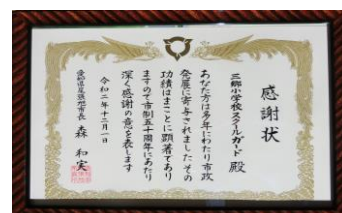 感謝状
三郷小学校スクールガード殿
あなた方は多年にわたり市政
発展に寄与されましたその
功績はまことに顕著であり
ますので市制五十周年にあたり
深く感謝の意を表します
令和二年十二月一日
愛知県尾張旭市長 森 和実